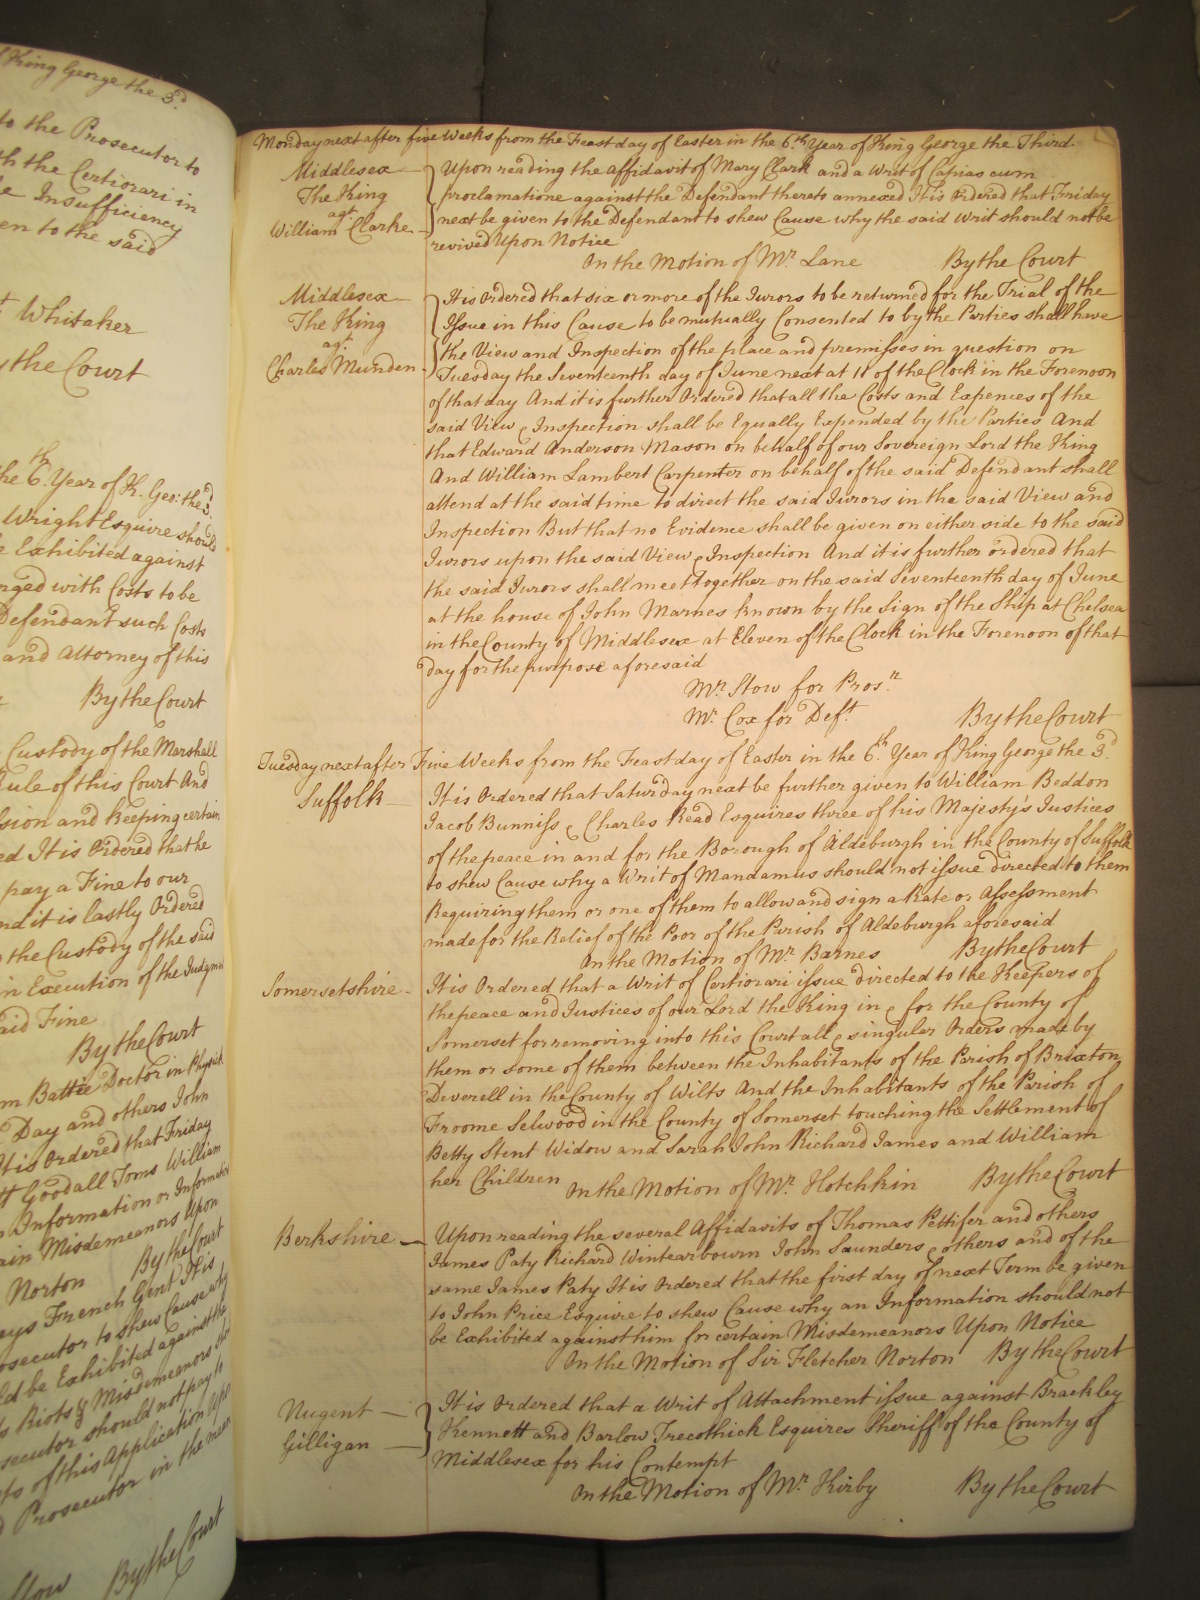 King George the 3d.
to the Prosecutor to
the Certiorari in
Insufficiency
en to the said
Whitaker
the Court
the 6th. Year of K. Geo: the 3d.
Wright Esquire should
Exhibited against
with Costs to be
Defendant such Costs
and Attorney of this
By the Court
Custody of the Marshall
Rule of this Court And
sion and keeping certain
ed It is Ordered that he
pay a Fine to our
nd it is lastly Ordered
the Custody of the said
in Execution of the Judgm
aid Fine
By the Court
m Battie Doctor in Physick
Day and others John
It is Ordered that Friday
tt Goodall Toms William
Information or Informatio
ain Misdemeanors Upon
Norton By the Court
French Gent It is
osecutor to shew Cause why
ld be Exhibited against the
Riots & Misdemeanors
secutor should not pay to
ts of this Application
Prosecutor in the mean
By the Court
Monday next after five Weeks from the Feast day of Easter in the 6.th Year of King George the Third.
Middlesex Upon reading the affidavit of Mary Clark and a Writ of Capias cum
The King proclamatione against the Defendant thereto annexed It is Ordered that Friday
agt.
William Clarke next be given to the Defendant to shew Cause why the said Writ should not be
revived Upon Notice
On the Motion of Mr. Lane By the Court
Middlesex It is Ordered that six or more of the Jurors to be returned for the Trial of the
The King Issue in this Cause to be mutually Consented to by the Parties shall have
agt.
the View and Inspection of the place and premisses in question on
Charles Munden Tuesday the Seventeenth day of June next at 11 of the Clock in the Forenoon
of that day And it is further Ordered that all the Costs and Expences of the
said View & Inspection shall be Equally Expended by the Parties And
that Edward Anderson Mason on behalf of our Sovereign Lord the King
And William Lambert Carpenter on behalf of the said Defendant shall
attend at the said time to direct the said Jurors in the said View and
Inspection But that no Evidence shall be given on either side to the said
Jurors upon the said View & Inspection And it is further ordered that
the said Jurors shall meet together on the said Seventeenth day of June
at the house of John Marnes known by the sign of the Ship at Chelsea
in the County of Middlesex at Eleven of the Clock in the Forenoon of that
day for the purpose aforesaid
Mr. Stow for Prosr.
Mr. Cox for Deft. By the Court
Tuesday next after Five Weeks from the Feast day of Easter in the 6.th Year of King George the 3d
Suffolk It is Ordered that Saturday next be further given to William Beddon
Jacob Bunniss & Charles Read Esquires three of his Majesty's Justices
of the peace in and for the Borough of Aldeburgh in the County of Suffolk
to shew Cause why a Writ of Mandamus should not issue directed to them
Requiring them or one of them to allow and sign a Rate or Assessment
made for the Relief of the Poor of the Parish of Aldeburgh aforesaid
On the Motion of Mr. Barnes By the Court
Somersetshire It is Ordered that a Writ of Certiorari issue directed to the Keepers of
the peace and Justices of our Lord the King in & for the County of
Somerset for removing into this Court all & singular Orders made by
them or some of them between the Inhabitants of the Parish of Brixton
Deverell in the County of Wilts And the Inhabitants of the Parish of
Froome Selwood in the County of Somerset touching the Settlement of
Betty Stent Widow and Sarah John Richard James and William
her Children On the Motion of Mr. Hotchkin By the Court
Berkshire Upon reading the several Affidavits of Thomas Pettifer and others
James Paty Richard Wintearbourn John Saunders & others and of the
same James Paty It is Ordered that the first day of next Term be given
to John Price Esquire to shew Cause why an Information should not
be Exhibited against him for certain Misdemeanors Upon Notice
On the Motion of Sir Fletcher Norton By the Court
Nugent It is Ordered that a Writ of Attachment issue against Brackley
Gilligan Kennett and Barlow Trecothick Esquires Sheriff of the County of
Middlesex for his Contempt
On the Motion of Mr. Kirby By the Court